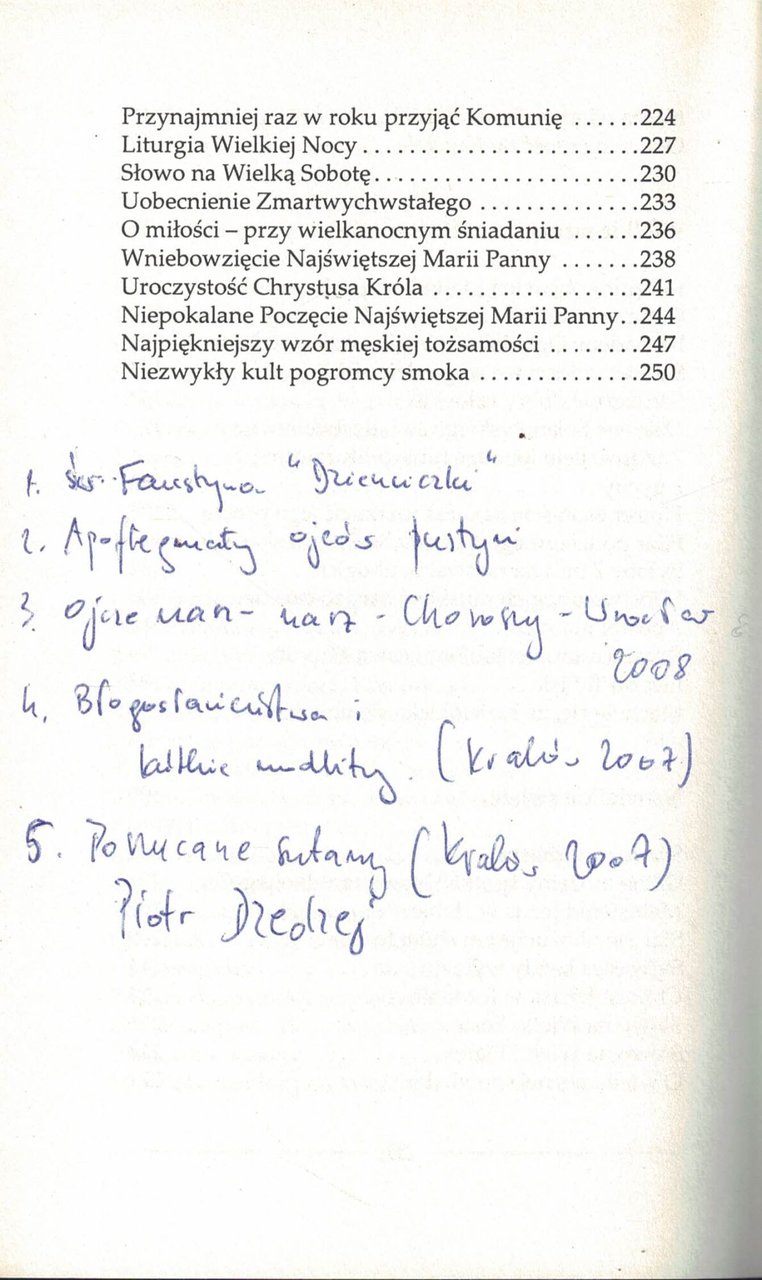 Przynajmniej raz w roku przyjąć Komunię ......224
Liturgia Wielkiej Nocy........................227
Słowo na Wielką Sobotę.......................230
Uobecnienie Zmartwychwstałego ..............233
O miłości – przy wielkanocnym śniadaniu ......236
Wniebowzięcie Najświętszej Marii Panny .......238
Uroczystość Chrystusa Króla ..................241
Niepokalane Poczęcie Najświętszej Marii Panny..244
Najpiękniejszy wzór męskiej tożsamości ........247
Niezwykły kult pogromcy smoka ..............250
1. św. Faustyna "Dzienniczku"
2. Apoftegmaty ojców pustyni
3. Ojcze nasz - - Wrocław
2008
4. Błogosławieństwa i
krótkie modlitwy. (Kraków 2007)
5. Porzucane sutanny (Kraków 2007)
Piotr Dzedzej